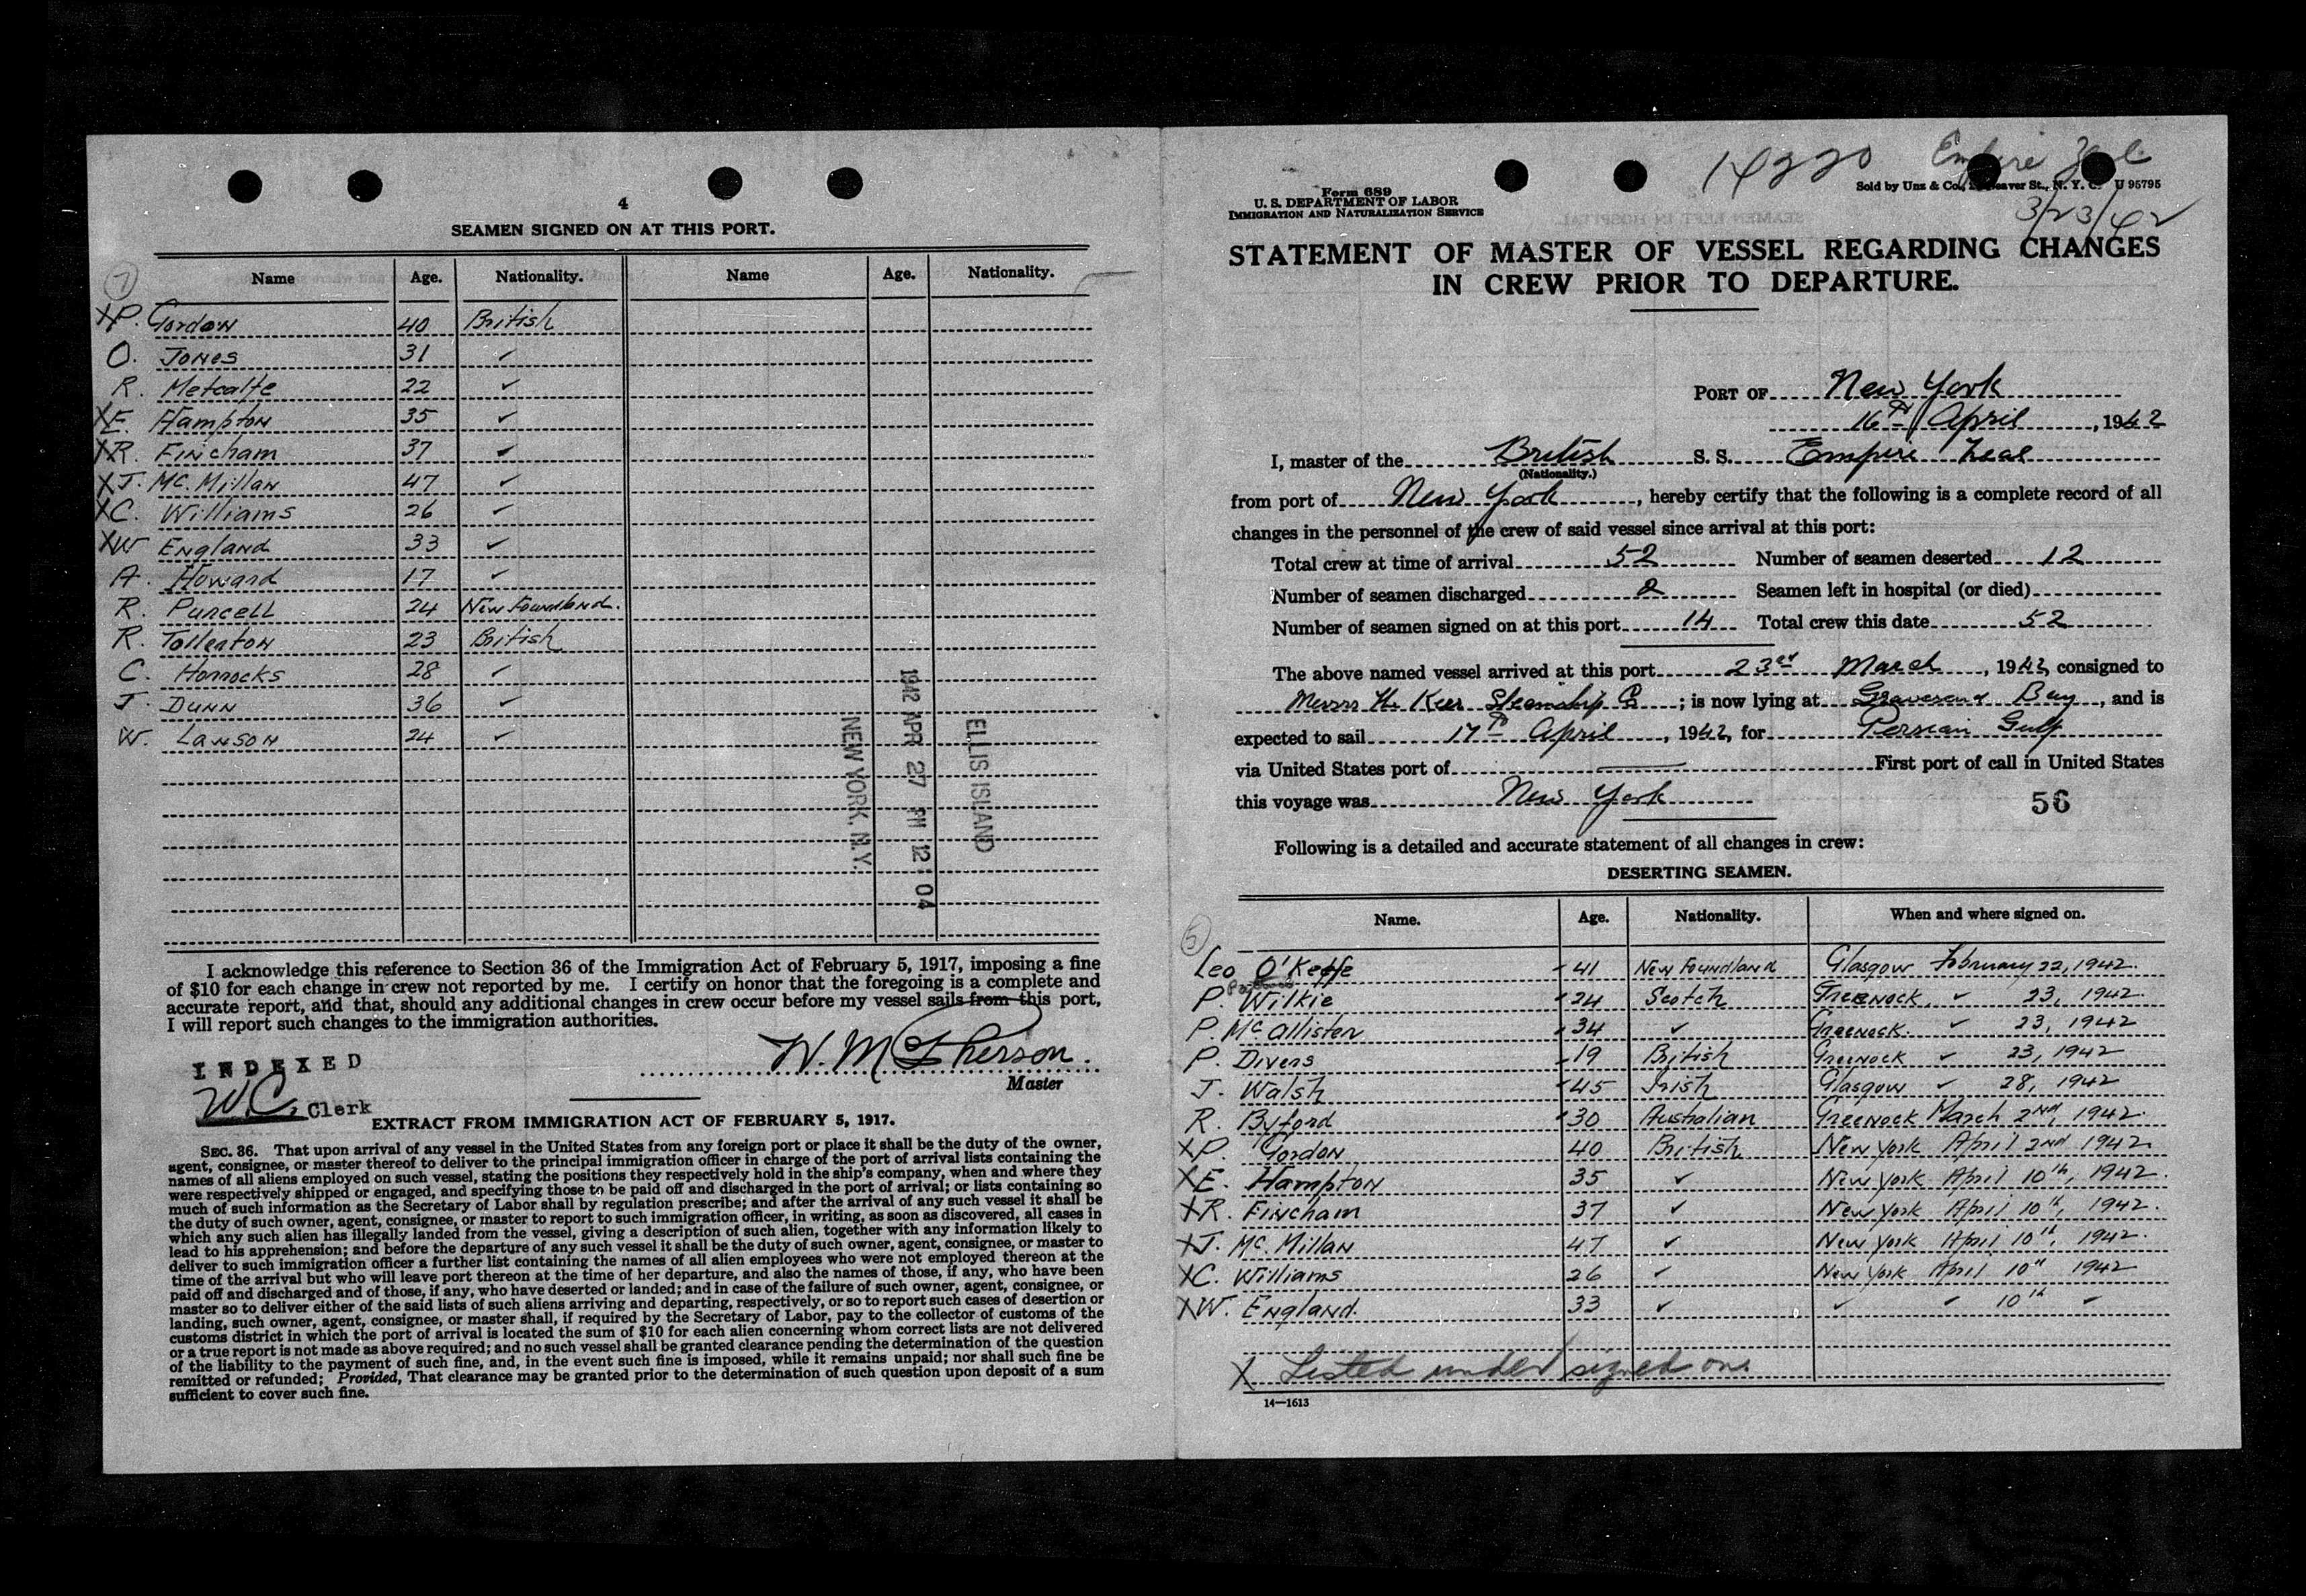 4
SEAMEN SIGNED ON AT THIS PORT.
Name Age. Nationality. Name Age. Nationality.
7
X P. Gordon 40 British
O. Jones 31 ✓
R. Metcalfe 22 ✓
X E. Hampton 35 ✓
X R. Fincham 37 ✓
X J. Mc. Millan 47 ✓
X C. Williams 26 ✓
X W England 33 ✓
A. Howard 17 ✓
R. Purcell 24 New Foundland.
R. Tollerton 23 British
C. Horrocks 28 ✓
J. Dunn 36 ✓
W. Lawson 24 ✓
ELLIS ISLAND
1942 APR 27 PM 12:04
NEW YORK, N.Y.
I acknowledge this reference to Section 36 of the Immigration Act of February 5, 1917, imposing a fine
of $10 for each change in crew not reported by me. I certify on honor that the foregoing is a complete and
accurate report, and that, should any additional changes in crew occur before my vessel sails from this port,
I will report such changes to the immigration authorities.
W. McPherson.
Master
INDEXED
W.C. Clerk
EXTRACT FROM IMMIGRATION ACT OF FEBRUARY 5, 1917.
SEC. 36. That upon arrival of any vessel in the United States from any foreign port or place it shall be the duty of the owner,
agent, consignee, or master thereof to deliver to the principal immigration officer in charge of the port of arrival lists containing the
names of all aliens employed on such vessel, stating the positions they respectively hold in the ship's company, when and where they
were respectively shipped or engaged, and specifying those to be paid off and discharged in the port of arrival; or lists containing so
much of such information as the Secretary of Labor shall by regulation prescribe; and after the arrival of any such vessel it shall be
the duty of such owner, agent, consignee, or master to report to such immigration officer, in writing, as soon as discovered, all cases in
which any such alien has illegally landed from the vessel, giving a description of such alien, together with any information likely to
lead to his apprehension; and before the departure of any such vessel it shall be the duty of such owner, agent, consignee, or master to
deliver to such immigration officer a further list containing the names of all alien employees who were not employed thereon at the
time of the arrival but who will leave port thereon at the time of her departure, and also the names of those, if any, who have been
paid off and discharged and of those, if any, who have deserted or landed; and in case of the failure of such owner, agent, consignee, or
master so to deliver either of the said lists of such aliens arriving and departing, respectively, or so to report such cases of desertion or
landing, such owner, agent, consignee, or master shall, if required by the Secretary of Labor, pay to the collector of customs of the
customs district in which the port of arrival is located the sum of $10 for each alien concerning whom correct lists are not delivered
or a true report is not made as above required; and no such vessel shall be granted clearance pending the determination of the question
of the liability to the payment of such fine, and, in the event such fine is imposed, while it remains unpaid; nor shall such fine be
remitted or refunded; Provided, That clearance may be granted prior to the determination of such question upon deposit of a sum
sufficient to cover such fine.
14220 Empire Zeal
Form 689
U. S. DEPARTMENT OF LABOR
IMMIGRATION AND NATURALIZATION SERVICE
Sold by Unz & Co., Beaver St., N. Y. C. U 95795
3/23/42
STATEMENT OF MASTER OF VESSEL REGARDING CHANGES
IN CREW PRIOR TO DEPARTURE.
PORT OF New York
16th April, 1942
I, master of the British S. S. Empire Zeal
(Nationality.)
from port of New York, hereby certify that the following is a complete record of all
changes in the personnel of the crew of said vessel since arrival at this port:
Total crew at time of arrival 52 Number of seamen deserted 12
Number of seamen discharged 2 Seamen left in hospital (or died)
Number of seamen signed on at this port 14 Total crew this date 52
The above named vessel arrived at this port 23rd March, 1942, consigned to
Messrs H. Kerr Steamship Co; is now lying at Gravesend Bay, and is
expected to sail 17th April, 1942, for Persian Gulf
via United States port of First port of call in United States
this voyage was New York
56
Following is a detailed and accurate statement of all changes in crew:
DESERTING SEAMEN.
Name. Age. Nationality. When and where signed on.
5
Leo O'Keefe 41 New Foundland Glasgow February 22, 1942.
P. Wilkie 24 Scotch Greenock ✓ 23, 1942.
P. Mc Allister 34 ✓ Greenock. ✓ 23, 1942
P. Divers 19 British Greenock ✓ 23, 1942
J. Walsh 45 Irish Glasgow ✓ 28, 1942
R. Byford 30 Australian Greenock March 2nd, 1942.
X P. Gordon 40 British New York April 2nd 1942
X E. Hampton 35 ✓ New York April 10th, 1942.
X R. Fincham 37 ✓ New York April 10th, 1942.
X J. Mc. Millan 47 ✓ New York April 10th, 1942.
X C. Williams 26 ✓ New York April 10th 1942
X W. England. 33 ✓ ✓ ✓ 10th ✓
X Listed under signed on.
14—1613